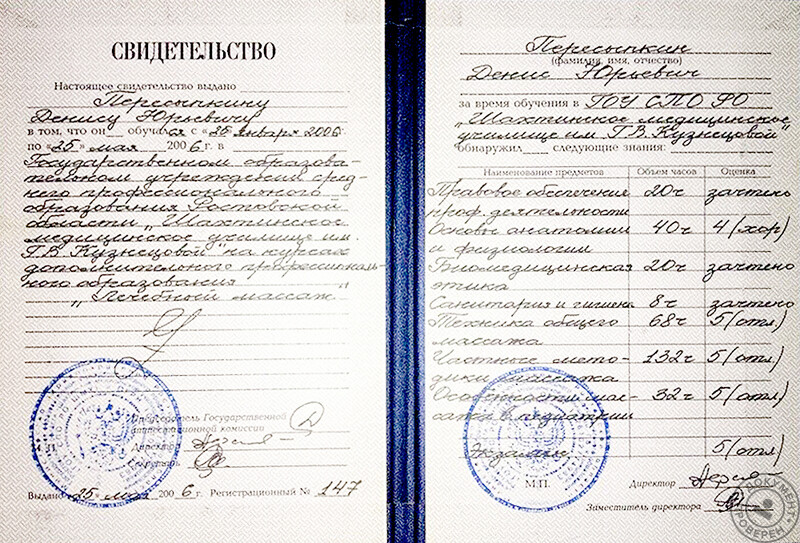 СВИДЕТЕЛЬСТВО
Настоящее свидетельство выдано
Пересыпкину
Денису Юрьевичу
в том, что он обучался с «26 января 2006
по «25» мая 2006 г. в
Государственном образова-
тельном учреждении сред-
него профессионального
образования Ростовской
области „Шахтинское
медицинское училище им.
Г.В. Кузнецовой" на курсах
дополнительного профессиональ-
ного образования
„Лечебный массаж"
Председатель Государственной
аттестационной комиссии
Директор
Секретарь
Выдано 25 мая 2006 г. Регистрационный № 147
Пересыпкин
(фамилия, имя, отчество)
Денис Юрьевич
за время обучения в ГОУ СПО РО
„Шахтинское медицинское
училище им. Г.В. Кузнецовой"
обнаружил следующие знания:
Наименование предметов Объем часов Оценка
Правовое обеспечение 20ч зачтено
проф. деятельности
Основы анатомии 40ч 4 (хор)
и физиологии
Биомедицинская 20ч зачтено
этика
Санитария и гигиена 8ч зачтено
Техника общего 68ч 5 (отл)
массажа
Частные мето- 132ч 5 (отл)
дики массажа
Особенности мас- 32ч 5 (отл)
сажа в педиатрии
Экзамен 5 (отл)
М.П.
Директор
Заместитель директора
ДОКУМЕНТ
ПРОВЕРЕН